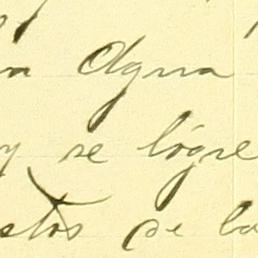 a Agua
y se logre
stos de la